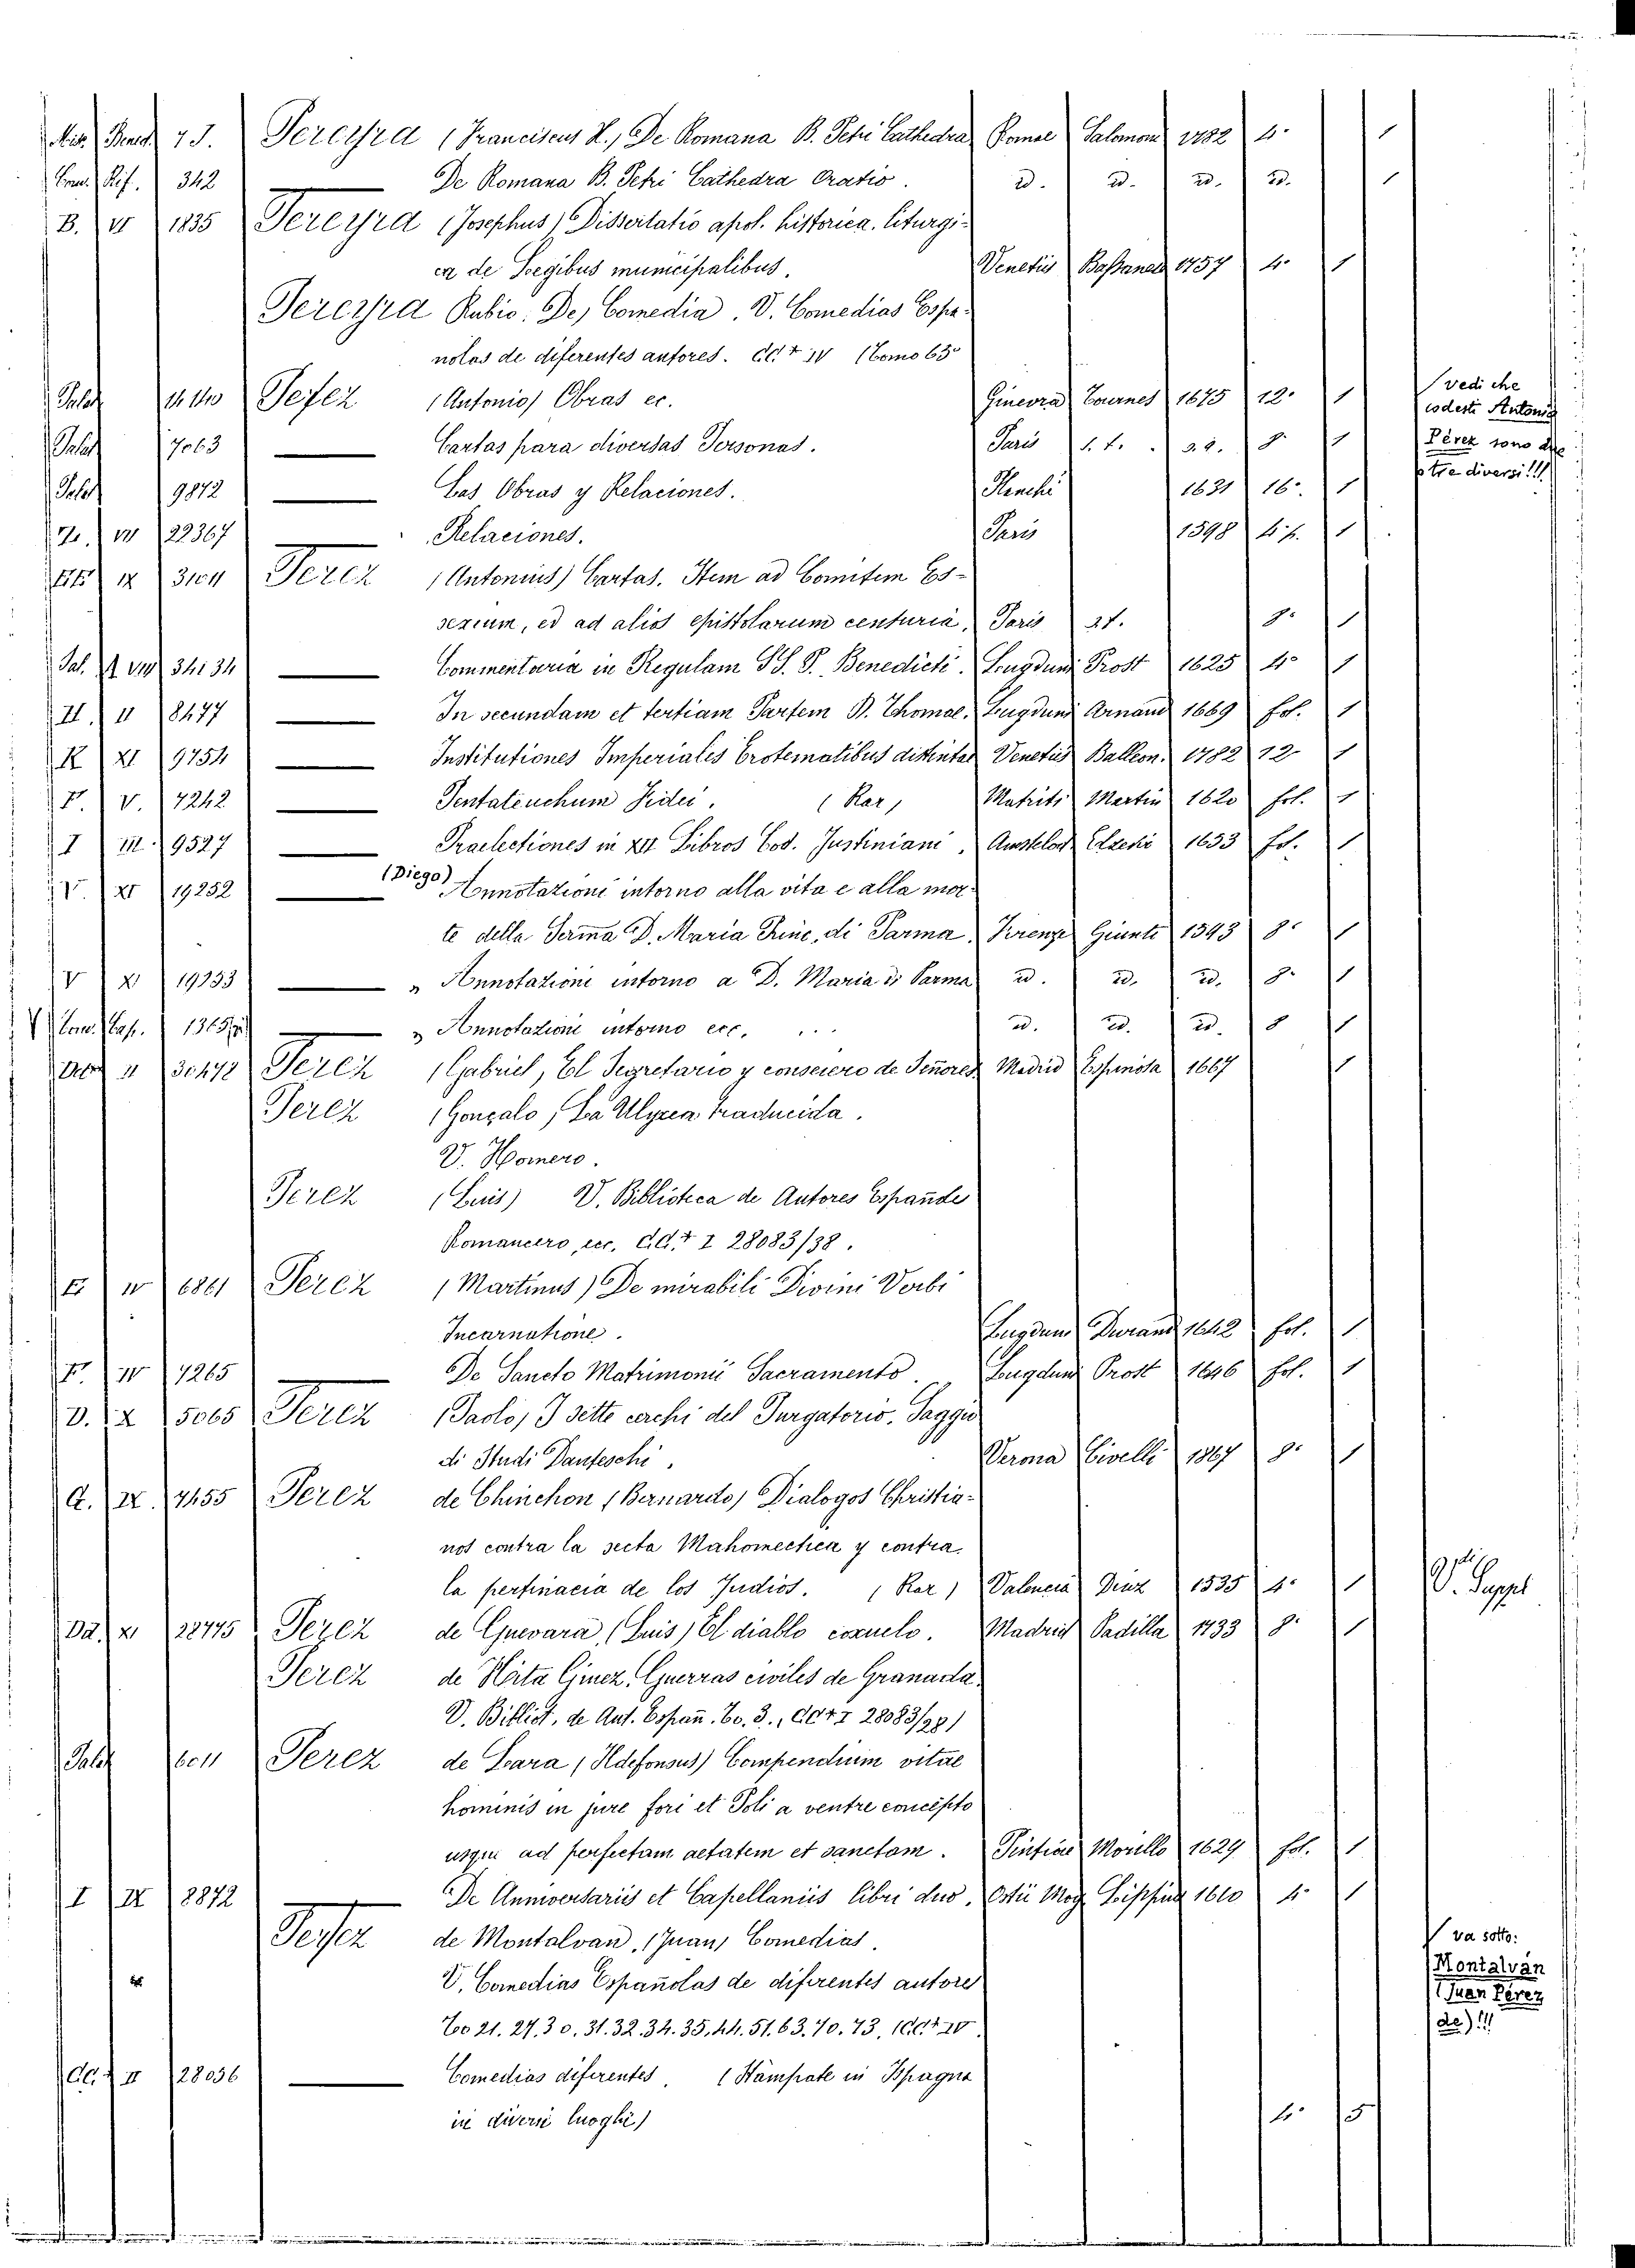 Bened 75. Pereyra (Franciscus X.) De Romana B. Petri Cathedra Romae Salomoni 1782 4° 1
Conv. Rif. 342 De Romana B. Petri Cathedra Oratio. id. id. id. id. 1
B. VI 1835 Pereyra (Josephus) Dissertatio apol. historica, liturgi-
ca de Legibus municipalibus. Venetiis Bassanese 1757 4° 1
Pereyra Rubio. De) Comedia. V. Comedias Espa-
nolas de diferentes autores. CC+ IV (Tomo 63°
Palat 11.110 Perez (Antonio) Obras ec. Ginevra Tournes 1675 12° 1
vedi che
codesti Antonio
Perez sono due
o tre diversi!!!
Palat 7063 — Cartas para diversas Personas. Paris s. t. s. a. 8° 1
Palat 9872 — Las Obras y Relaciones. 1631 16°. 1
VI 22367 Relaciones. Paris 1598 4° p. 1
IX 3104 Perez (Antonius) Cartas. Item ad Comitem Es-
sexium, ed ad alios epistolarum centuria. Paris 8° 1
Pal. VIII 34134 — Commentaria in Regulam SS. P. Benedicti. Lugduni Prost 1625 4° 1
II. II 8477 — In secundam et tertiam Partem D. Thomae. Lugduni Arnaud 1669 fol. 1
K XI 9754 — Institutiones Imperiales Erotematibus distintae Venetiis Balleon. 1782 12° 1
F. V. 7242 — Pentateuchum Fidei. (Rar) Matriti Martin 1620 fol. 1
I III. 9527 — Praelectiones in XII Libros Cod. Justiniani. Amstelod Elzevir 1653 fol. 1
V. XI 19252 — (Diego) Annotazioni intorno alla vita e alla mor-
te della Serma D. Maria Princ. di Parma. Firenze Giunti 1593 8° 1
V XI 19253 — „ Annotazioni intorno a D. Maria di Parma id. id. id. 8° 1
V Conv. Cap. — „ Annotazioni intorno ecc. ... id. id. id. 8 1
II 30472 Perez (Gabriel) El Segretario y consejero de Señores Madrid Espinosa 1667 1
Perez (Gonçalo) La Ulyxea traducida.
V. Homero.
Perez (Luis) V. Biblioteca de Autores Españole
Romancero, ecc. CC.+ I 28083/38.
E IV 6861 Perez (Martinus) De mirabili Divini Verbi
Incarnatione. Lugduni Durand 1642 fol. 1
F. IV 7265 De Sancto Matrimonii Sacramento. Lugduni Prost 1646 fol. 1
D. X 5065 Perez (Paolo) I sette cerchi del Purgatorio. Saggio
di Studi Danteschi. Verona Civelli 1867 8° 1
A. IX. 7455 Perez de Chinchon (Bernardo) Dialogos Christia-
nos contra la secta Mahomechea y contra
la pertinacia de los Judios. (Rar) Valencia Diaz 1535 4° 1
V. Suppl
Dd. XI 28775 Perez de Guevara, (Luis) El diablo coxuelo. Madrid Padilla 1733 8° 1
Perez de Hita Ginez, Guerras civiles de Granada.
V. Bibliot. de Aut. Españ. To. 3., CC+ I 28083/28)
Palat 6011 Perez de Lara (Ildefonsus) Compendium vitae
hominis in jure fori et Poli a ventre concepto
usque ad perfectam aetatem et sanctam. Pintiae Morillo 1629 fol. 1
I IX 8872 De Anniversariis et Capellaniis libri duo. Lippius 1610 4° 1
Perez de Montalvan, (Juan) Comedias.
va sotto:
Montalván
(Juan Pérez
de)!!!
V. Comedias Españolas de diferentes autores
To 21. 27. 30. 31. 32. 34. 35. 44. 51. 63. 70. 73. (CC+ IV.
CC. + II 28036 — Comedias diferentes. (Stampate in Ispagna
in diversi luoghi) 4° 5